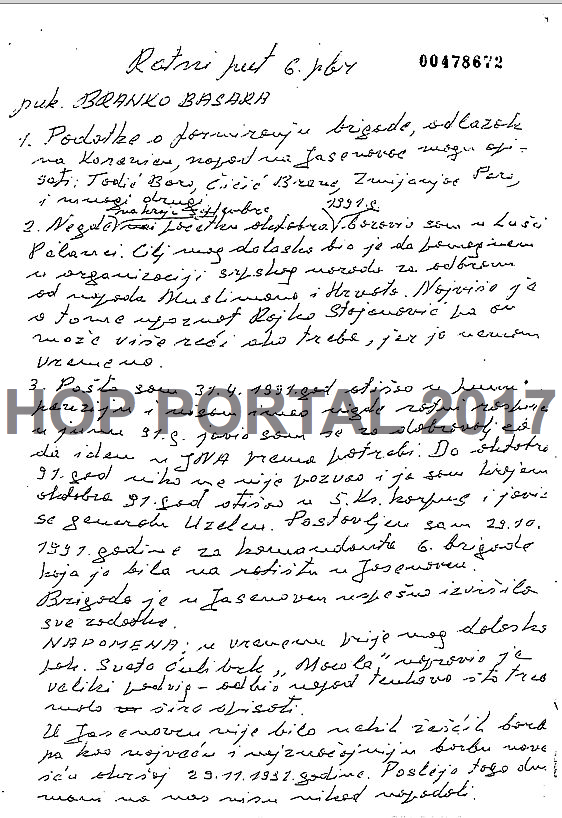 Ratni put 6. pbr 00478672
puk. BRANKO BASARA
1. Podatke o formiranju brigade, odlazak
na Koranicu, napad na Jasenovac mogu opi-
sati: Todić Boro, Ćićić Brane, Zmijanjac Pero,
i mnogi drugi
2. Negde početkom oktobra 1991.g. boravio sam u Lušci
Palanci. Cilj mog dolaska bio je da pomognem
u organizaciji srpskog naroda za odbranu
od napada Muslimana i Hrvata. Najviše je
o tome upoznat Rajko Stojanović pa on
može više reći ako treba, jer ja nemam
vremena.
3. Pošto sam 31.4.1991.god otišao u penzi-
HOP PORTAL 2017
u junu 91.g. javio sam se za dobrovoljca
da idem u JNA prema potrebi. Do oktobra
91.god niko me nije pozvao i ja sam krajem
oktobra 91.god otišao u 5. Ks. korpus i javio
se generalu Uzelcu. Postavljen sam 29.10.
1991.godine za komandanta 6. brigade
koja je bila na ratištu u Jasenovcu.
Brigada je u Jasenovcu uspešno izvršila
sve zadatke.
NAPOMENA: u vremenu prije mog dolaska
pok. Sveto Ćulibrk „Macola" napravio je
veliki podvig – odbio napad tenkova što treba
malo šire opisati.
U Jasenovcu nije bilo nekih žešćih borbi
pa kao najveću i najznačajniju borbu nave
šću okršaj 29.11.1991.godine. Poslije toga du-
šmani na nas nisu nikad napadali.